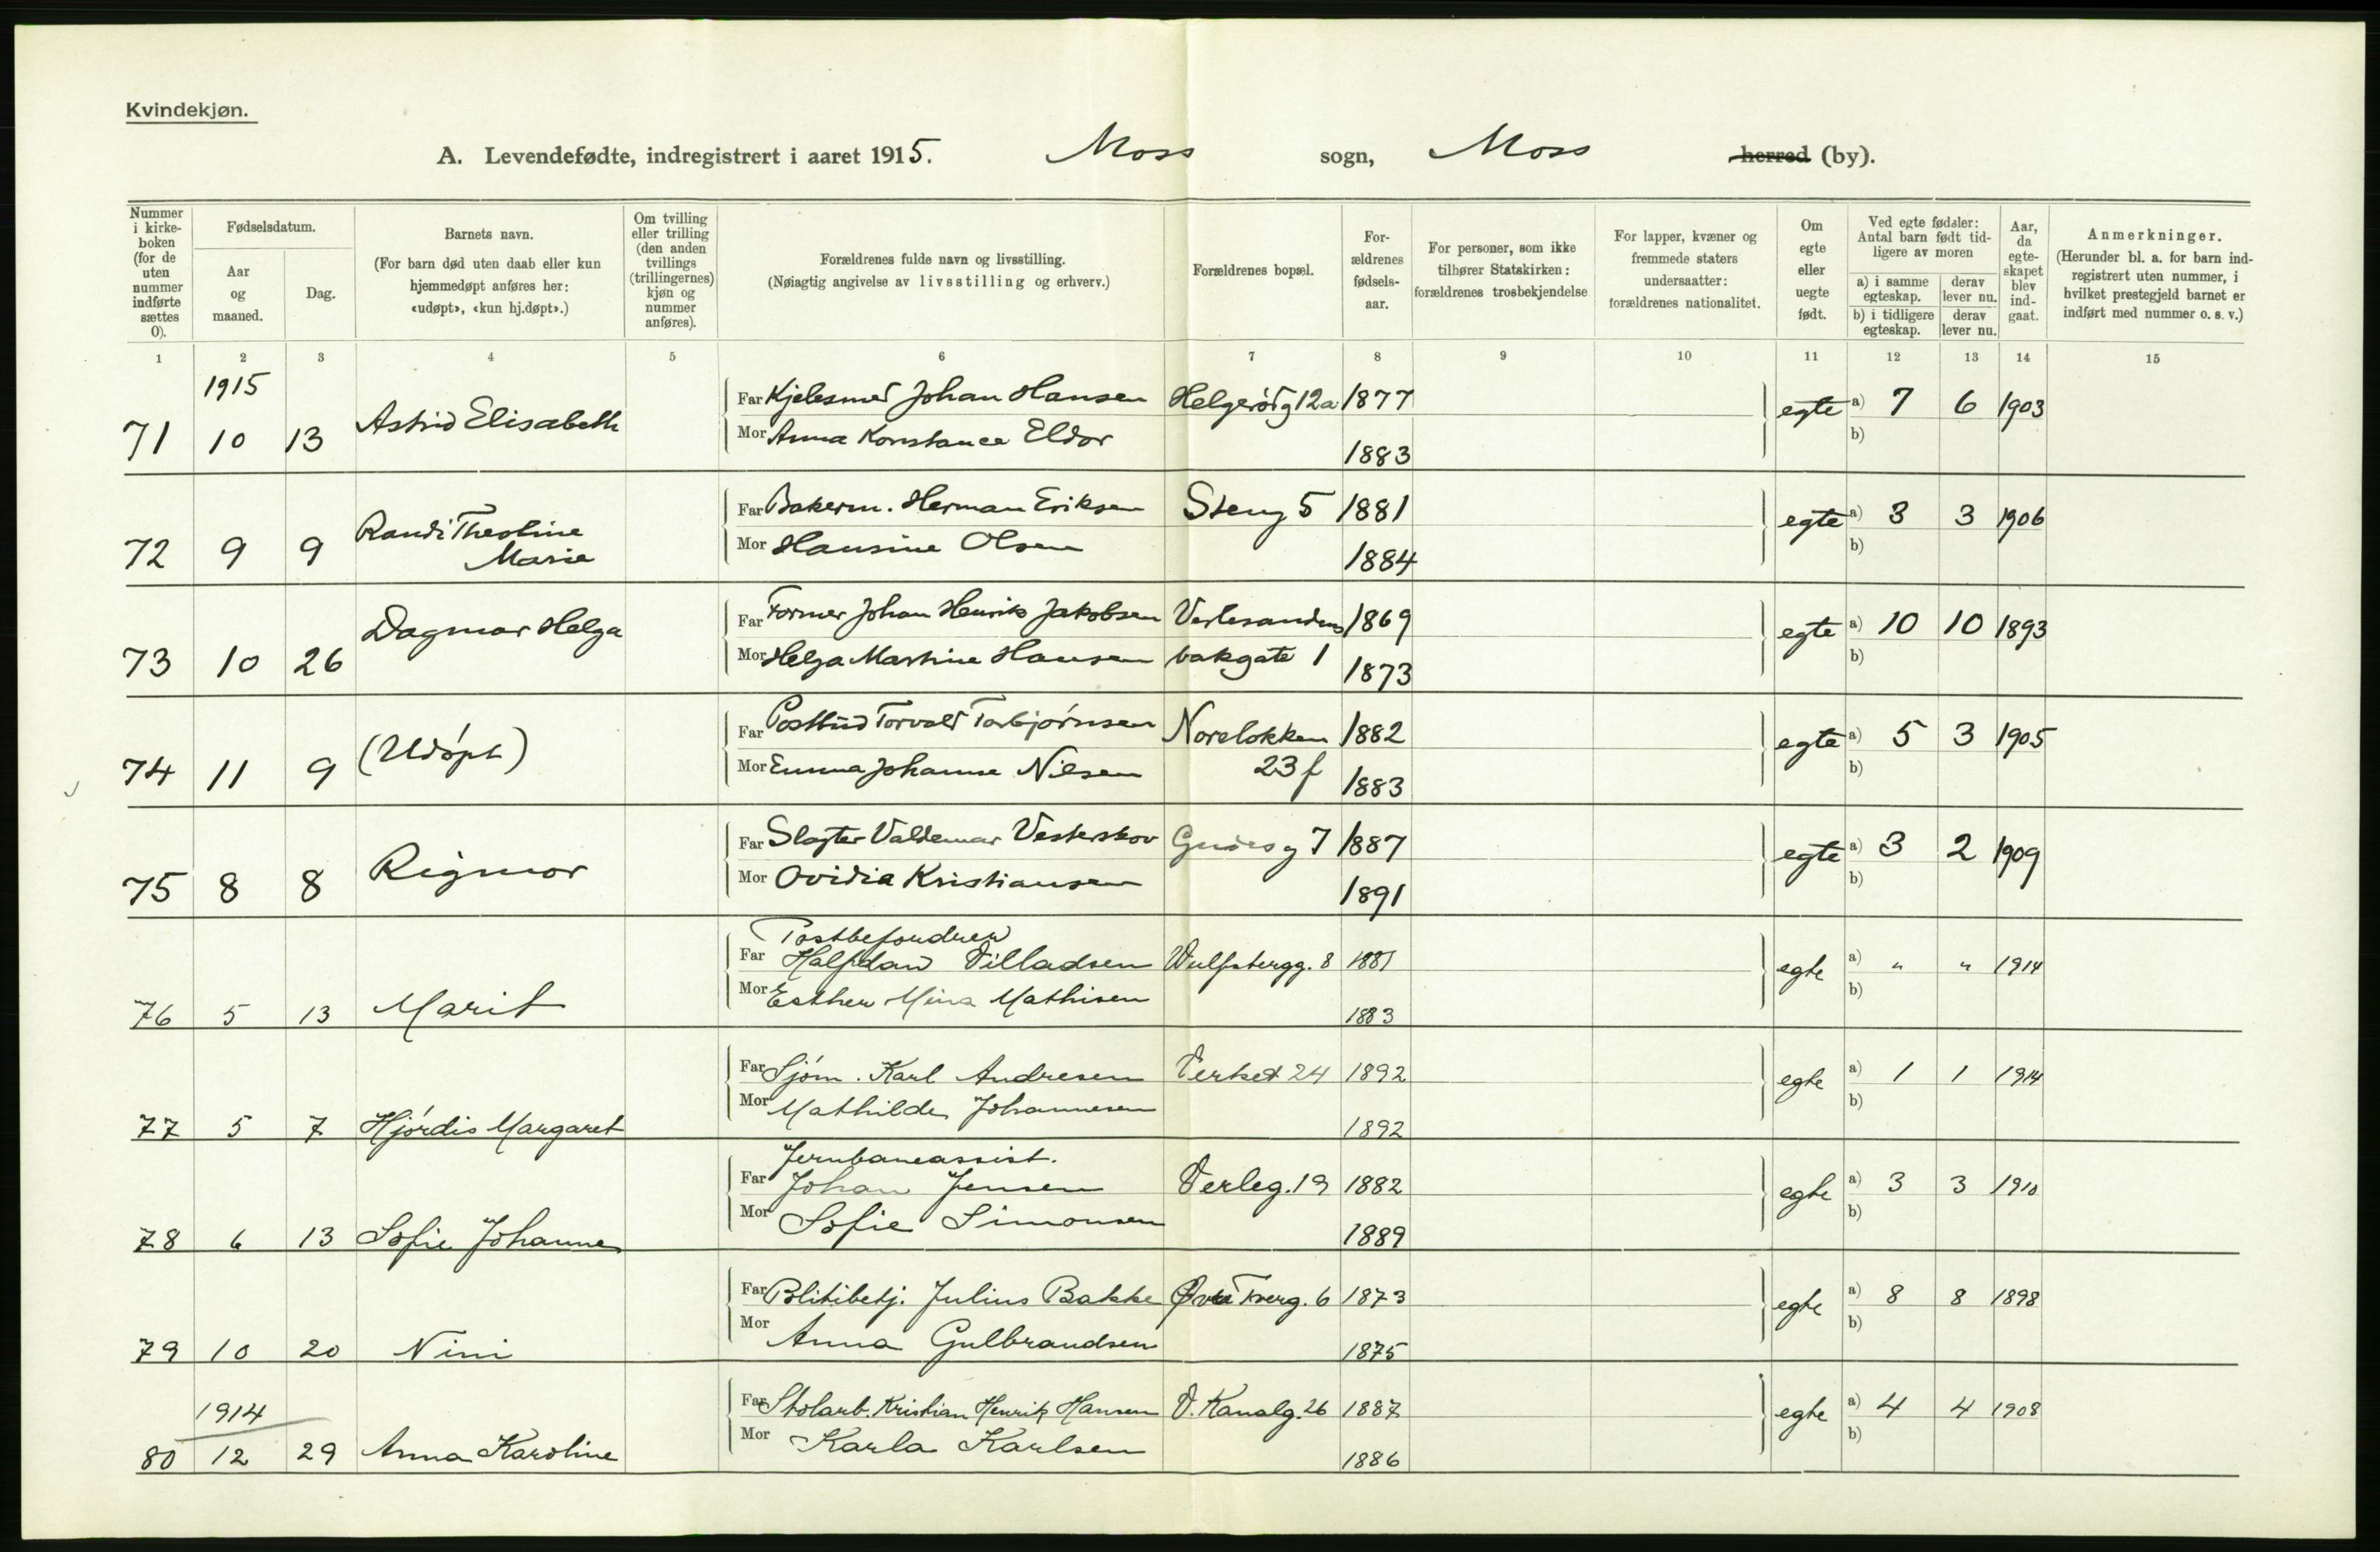 Kvindekjøn.
A. Levendefødte, indregistrert i aaret 1915. Moss sogn, Moss herred (by).
Nummer i kirke-boken (for de uten nummer indførte sættes 0).
Fødselsdatum.
Aar og maaned.
Dag.
Barnets navn.
(For barn død uten daab eller kun hjemmedøpt anføres her: «udøpt», «kun hj.døpt».)
Om tvilling eller trilling (den anden tvillings (trillingernes) kjøn og nummer anføres).
Forældrenes fulde navn og livsstilling.
(Nøiagtig angivelse av livsstilling og erhverv.)
Forældrenes bopæl.
For-ældrenes fødsels-aar.
For personer, som ikke tilhører Statskirken: forældrenes trosbekjendelse
For lapper, kvæner og fremmede staters undersaatter: forældrenes nationalitet.
Om egte eller uegte født.
Ved egte fødsler: Antal barn født tid-ligere av moren
a) i samme egteskap. derav lever nu.
b) i tidligere egteskap. derav lever nu.
Aar, da egte-skapet blev ind-gaat.
Anmerkninger.
(Herunder bl. a. for barn ind-registrert uten nummer, i hvilket prestegjeld barnet er indført med nummer o. s. v.)
1 2 3 4 5 6 7 8 9 10 11 12 13 14 15
1915
Far Kjelesmed Johan Hansen Helgerödg 12a 1877 egte a) 7 6 1903
71 10 13 Astrid Elisabeth
Mor Anna Konstance Eldor 1883 b)
Far Bakerm. Herman Eriksen Steng 5 1881 egte a) 3 3 1906
72 9 9 Randi Thestine Marie
Mor Hansine Olsen 1884 b)
Far Former Johan Henrik Jakobsen Verlesandens 1869 egte a) 10 10 1893
73 10 26 Dagmar Helga
Mor Helga Martine Hansen bakgate 1 1873 b)
Far Postbud Torvald Torbjørnsen Noreløkken 1882 egte a) 5 3 1905
74 11 9 (Udøpt)
Mor Emma Johanne Nilsen 23 f 1883 b)
Far Slagter Valdemar Vesterskov 7 1887 egte a) 3 2 1909
75 8 8 Rigmor
Mor Ovidia Kristiansen 1891 b)
Postbefordrer
Far Halfdan Villadsen Wulfsbergg. 8 1881 egte a) " " 1914
76 5 13 Marit
Mor Esther Mina Mathisen 1883 b)
Far Sjøm. Karl Andresen Verket 24 1892 egte a) 1 1 1914
77 5 7 Hjørdis Margaret
Mor Mathilde Johannesen 1892 b)
Jernbaneassist.
Far Johan Jensen Verleg. 19 1882 egte a) 3 3 1910
78 6 13 Sofie Johanne
Mor Sofie Simonsen 1889 b)
Far Politibetj. Julius Bakke Øvre Tverg. 6 1873 egte a) 8 8 1898
79 10 20 Nini
Mor Anna Gulbrandsen 1875 b)
1914
Far Stolarb. Kristian Henrik Hansen V. Kanalg. 26 1887 egte a) 4 4 1908
80 12 29 Anna Karoline
Mor Karla Karlsen 1886 b)